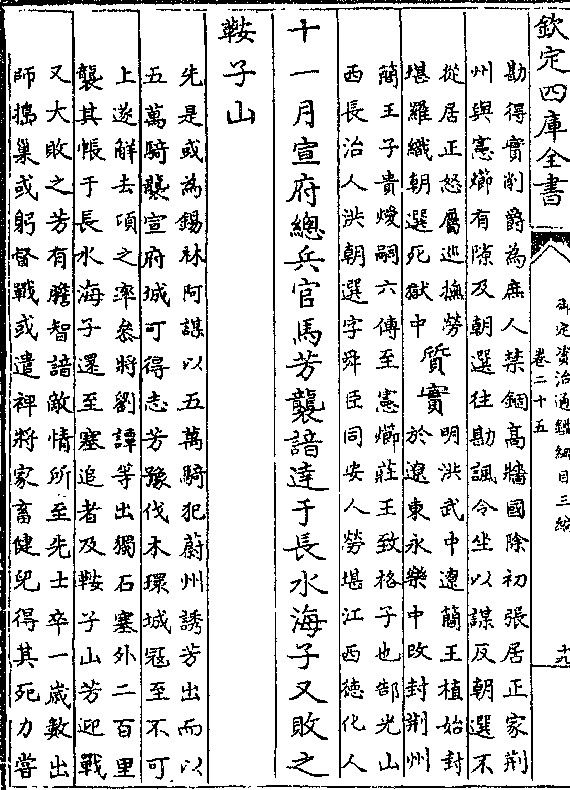 欽定四庫全書
御定資治通鑑綱目三編
卷二十五
十九
勘得實削爵為庶人禁錮高牆國除初張居正家荆
州與憲㸅有隙及朝選往勘諷令坐以謀反朝選不
從居正怒屬巡撫勞
堪羅織朝選死獄中
質實
明洪武中遼簡王植始封
於遼東永樂中改封荆州
簡王子貴㷂嗣六傳至憲㸅莊王致格子也郜光山
西長治人洪朝選字舜臣同安人勞堪江西德化人
十一月宣府總兵官馬芳襲諳達于長水海子又敗之
鞍子山
先是或為錫林阿謀以五萬騎犯蔚州誘芳出而以
五萬騎襲宣府城可得志芳豫伐木環城寇至不可
上遂解去項之率叅將劉潭等出獨石塞外二百里
襲其帳于長水海子還至塞追者及鞍子山芳迎戰
又大敗之芳有膽智諳敵情所至先士卒一歲數出
師搗巢或躬督戰或遣裨將家畜健兒得其死力嘗